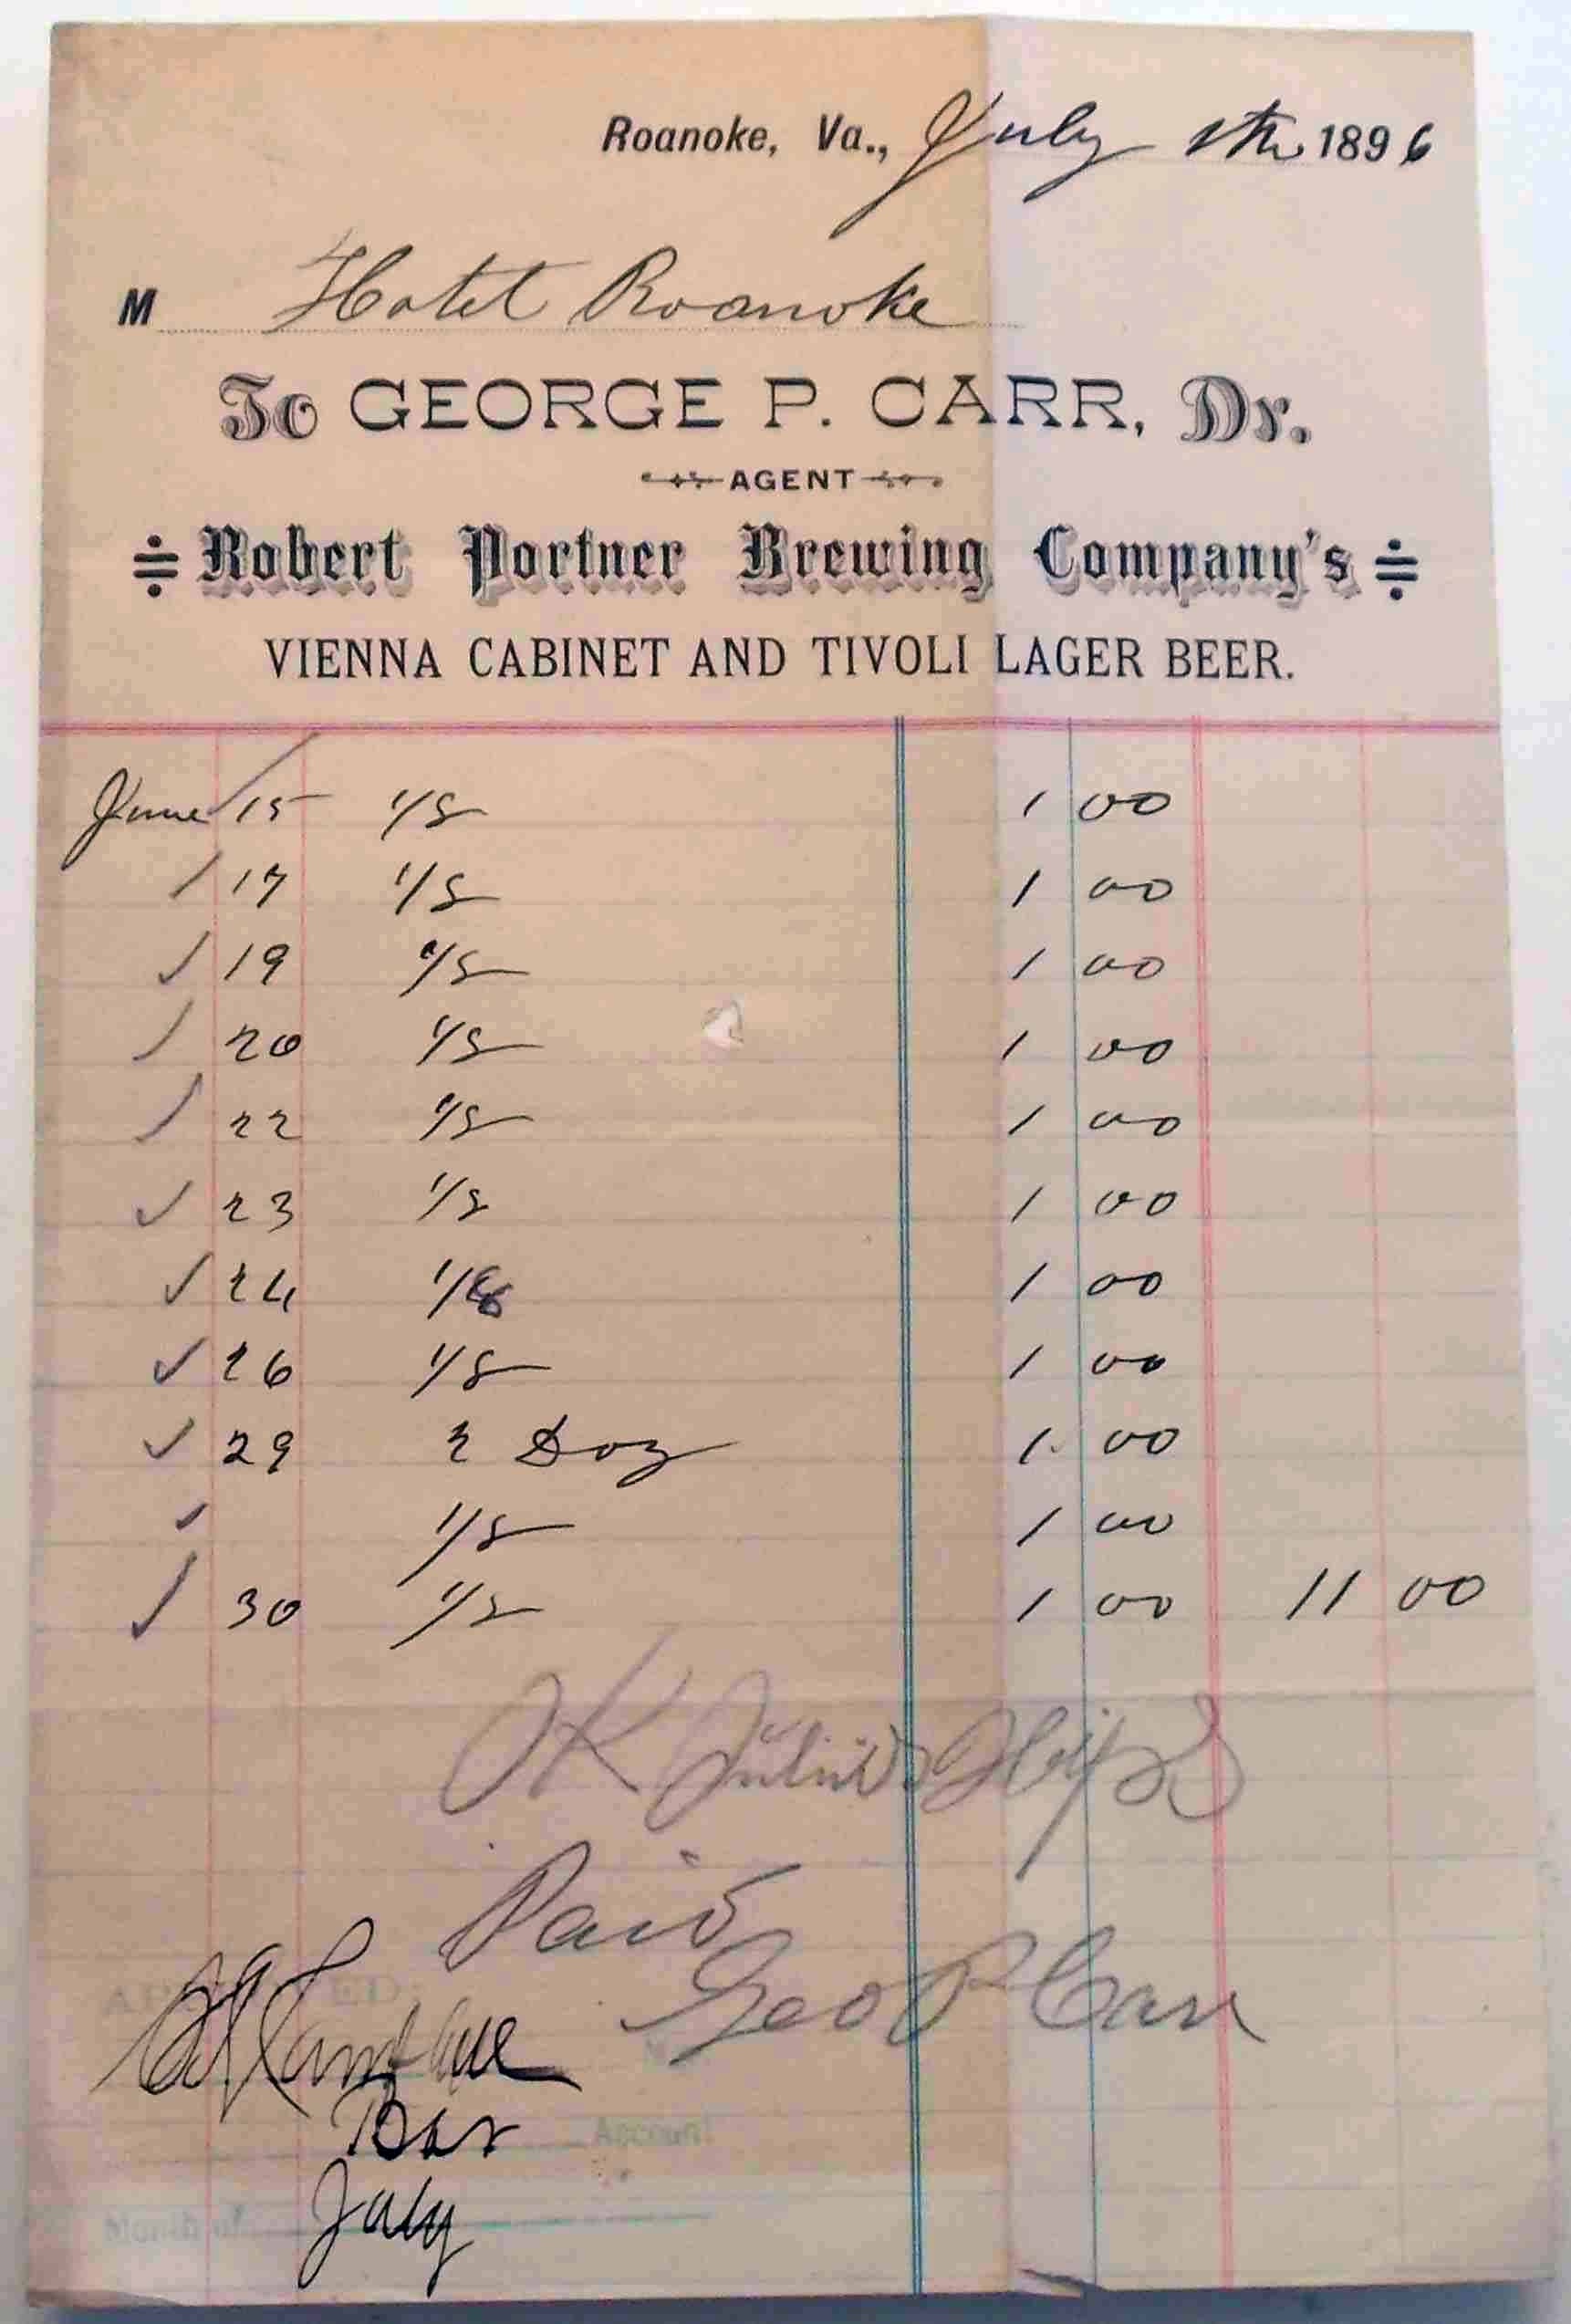 Roanoke, Va., July 1896
M Hotel Roanoke
To GEORGE P. CARR, Dr.
AGENT
Robert Portner Brewing Company's
VIENNA CABINET AND TIVOLI LAGER BEER.
June 15 1/8 1 00
17 1/8 1 00
19 1/8 1 00
20 1/8 1 00
22 1/8 1 00
23 1/8 1 00
24 1/8 1 00
26 1/8 1 00
29 2 Doz 1 00
1/8 1 00
30 1/8 1 00 11 00
OK Julius
Paid
Geo P Carr
APPROVED:
Bar Account
Month of July